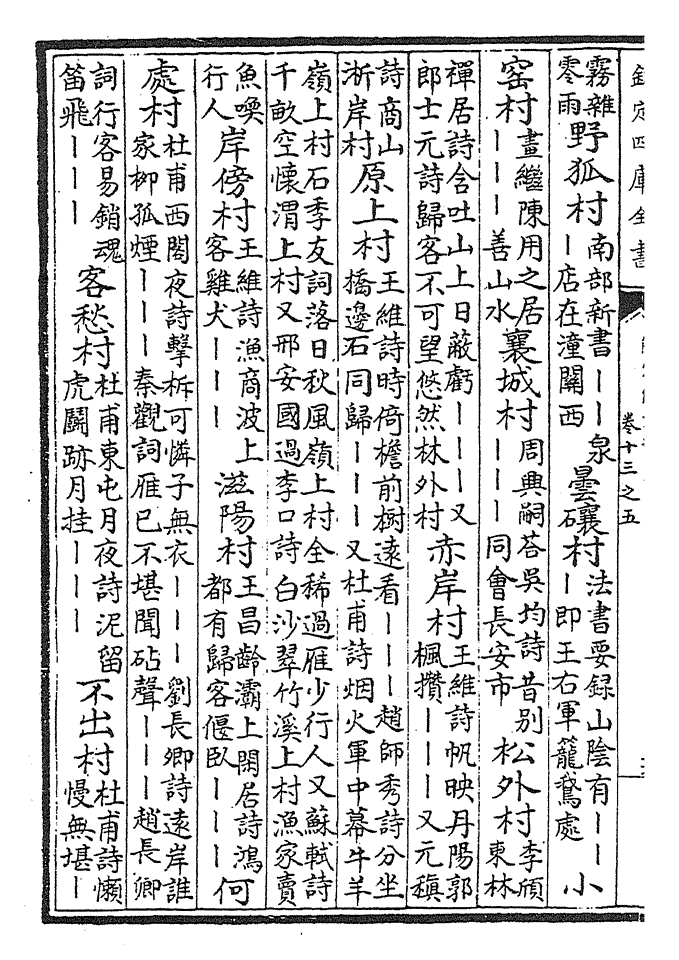 欽定四庫全書
卷十三之五
霧雜零雨野狐村南部新書——泉—店在潼關西曇䃰村法書要録山陰有———即王右軍籠鵞處小
窑村畫繼陳用之居———善山水襄城村周興嗣荅吳均詩昔别———同會長安市松外村李頎東林
禪居詩含吐山上日蔽虧———又郎士元詩歸客不可望悠然林外村赤岸村王維詩帆映丹陽郭楓攢———又元稹
詩商山淅岸村原上村王維詩時倚檐前樹遠看———趙師秀詩分坐橋邊石同歸———又杜甫詩烟火軍中幕牛羊
嶺上村石季友詞落日秋風嶺上村全稀過雁少行人又蘇軾詩千畝空懷渭上村又邢安國過李口詩白沙翠竹溪上村漁家賣
魚喚行人岸傍村王維詩漁商波上客雞犬———滋陽村王昌齡灞上閑居詩鴻都有歸客偃卧———何
處村杜甫西閣夜詩擊柝可憐子無衣———劉長卿詩遠岸誰家柳孤煙———秦觀詞雁已不堪聞砧聲———趙長卿
詞行客易銷魂笛飛———客愁村杜甫東屯月夜詩泥留虎鬭跡月挂———不出村杜甫詩懶慢無堪—